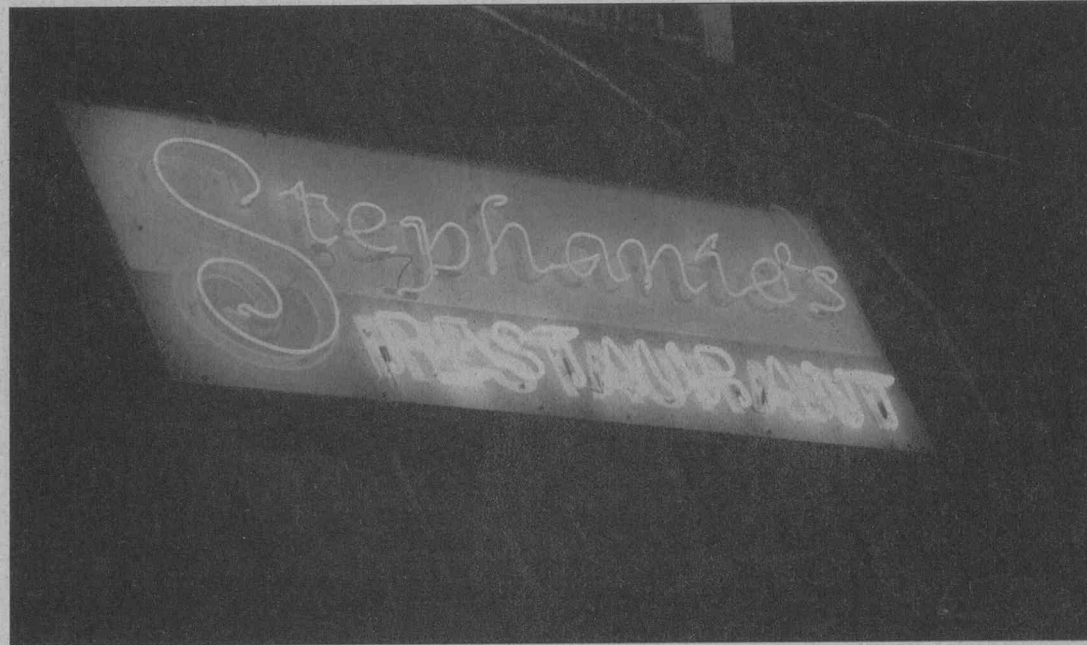 Stephanie's
RESTAURANT